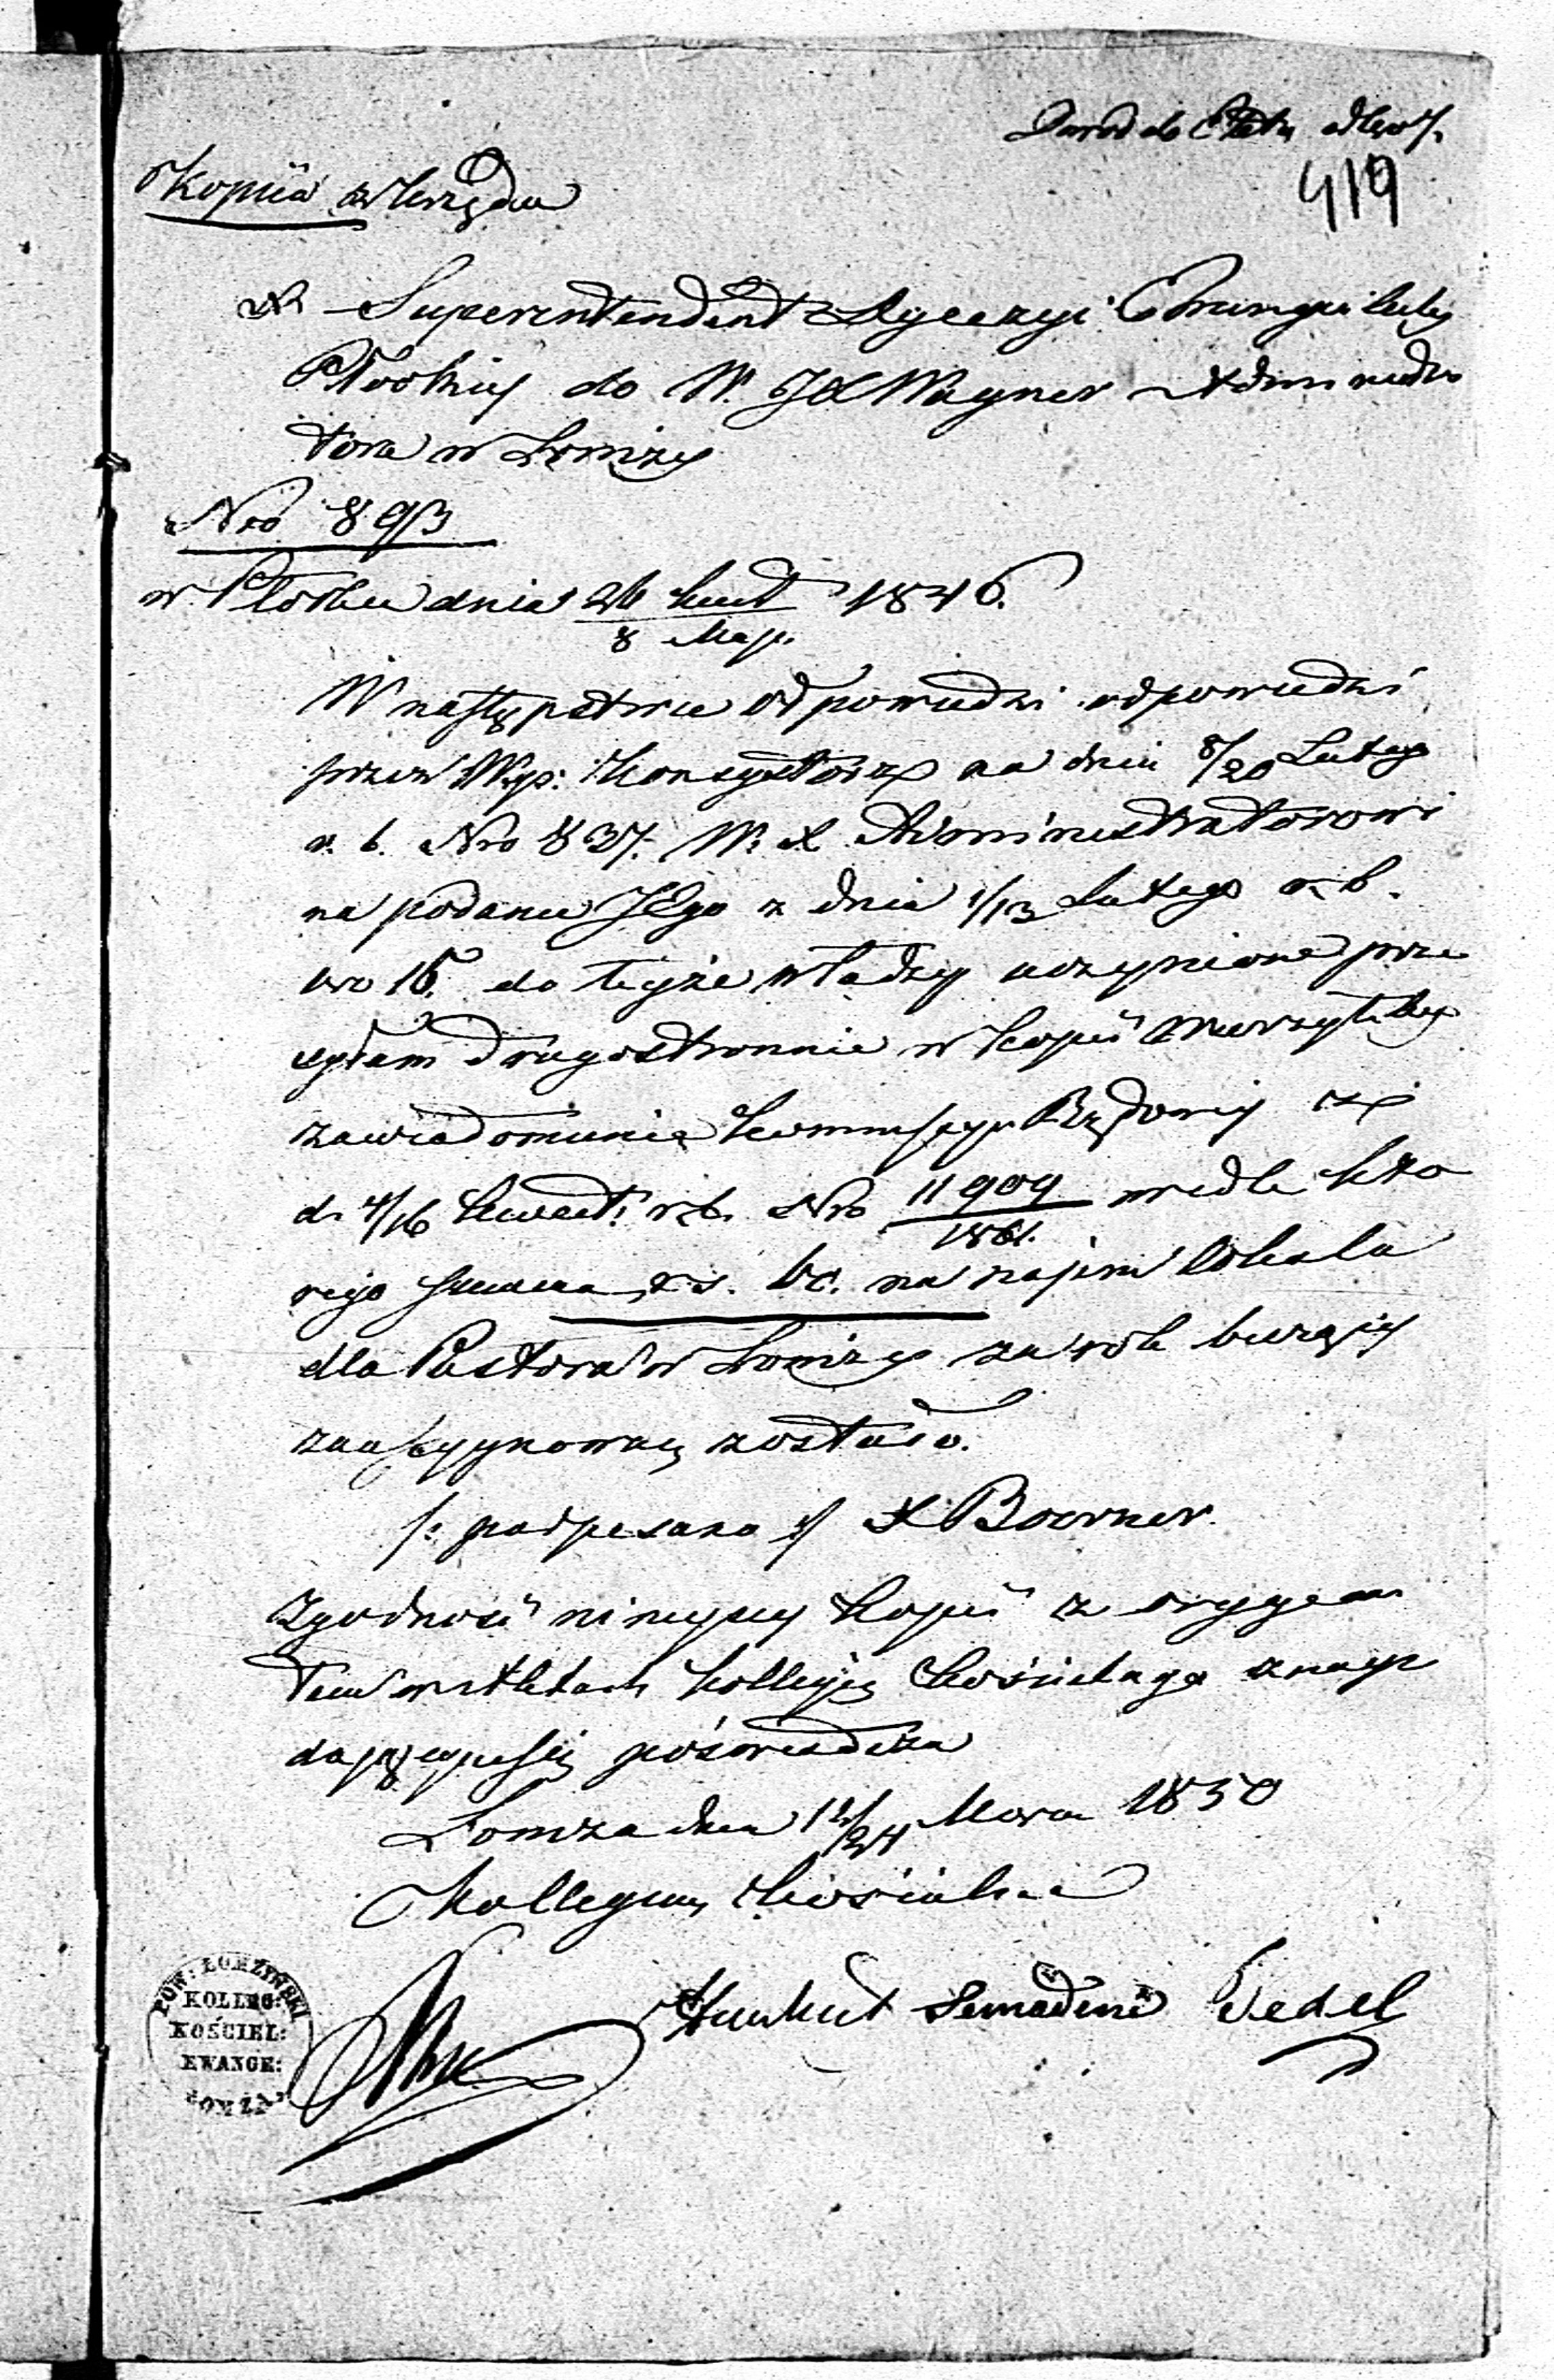 Dowod do Etatu
419
Kopiia z Urzędu
Superintendent Dyecezyi Ewangelickiey
Płockiey do W. JX Wagner Administra
tora w Łomży
Nro 893
w Płocku dnia 26 Kwiet 1846.
8 Maja
W następstwie odpowiedzi odpowiedzi
przez Wyż: Konsystorz na dniu 8/20 Lutego
r. b. Nro 837. W. X Administratorowi
na podanie JEgo z dnia 1/13 Lutego r. b.
nro 15. do teyże władzy uczynione prze
syłam drugostronnie w kopii
zawiadomienie Kommissyi Rządowey
d. 4/16 Kwiet. r. b. Nro 11909/1861. wedle któ
rego summa rs. 60. na najem lokalu
dla Pastora w Łomży za rok bieżący
zaassygnowaną została.
/: podpisano :/ X Boerner.
Zgodność ninieyszey kopii z orygina
łem w aktach Kollegium Kościelnego znay
dującym się poświadcza
Łomza dnia 12/24 Marca 1850
Kollegium Kościelne
Semadeni Wedel
POW: ŁOMŻYŃSKI
KOLLEG:
KOŚCIEL:
EWANGE:
ŁOMŻA